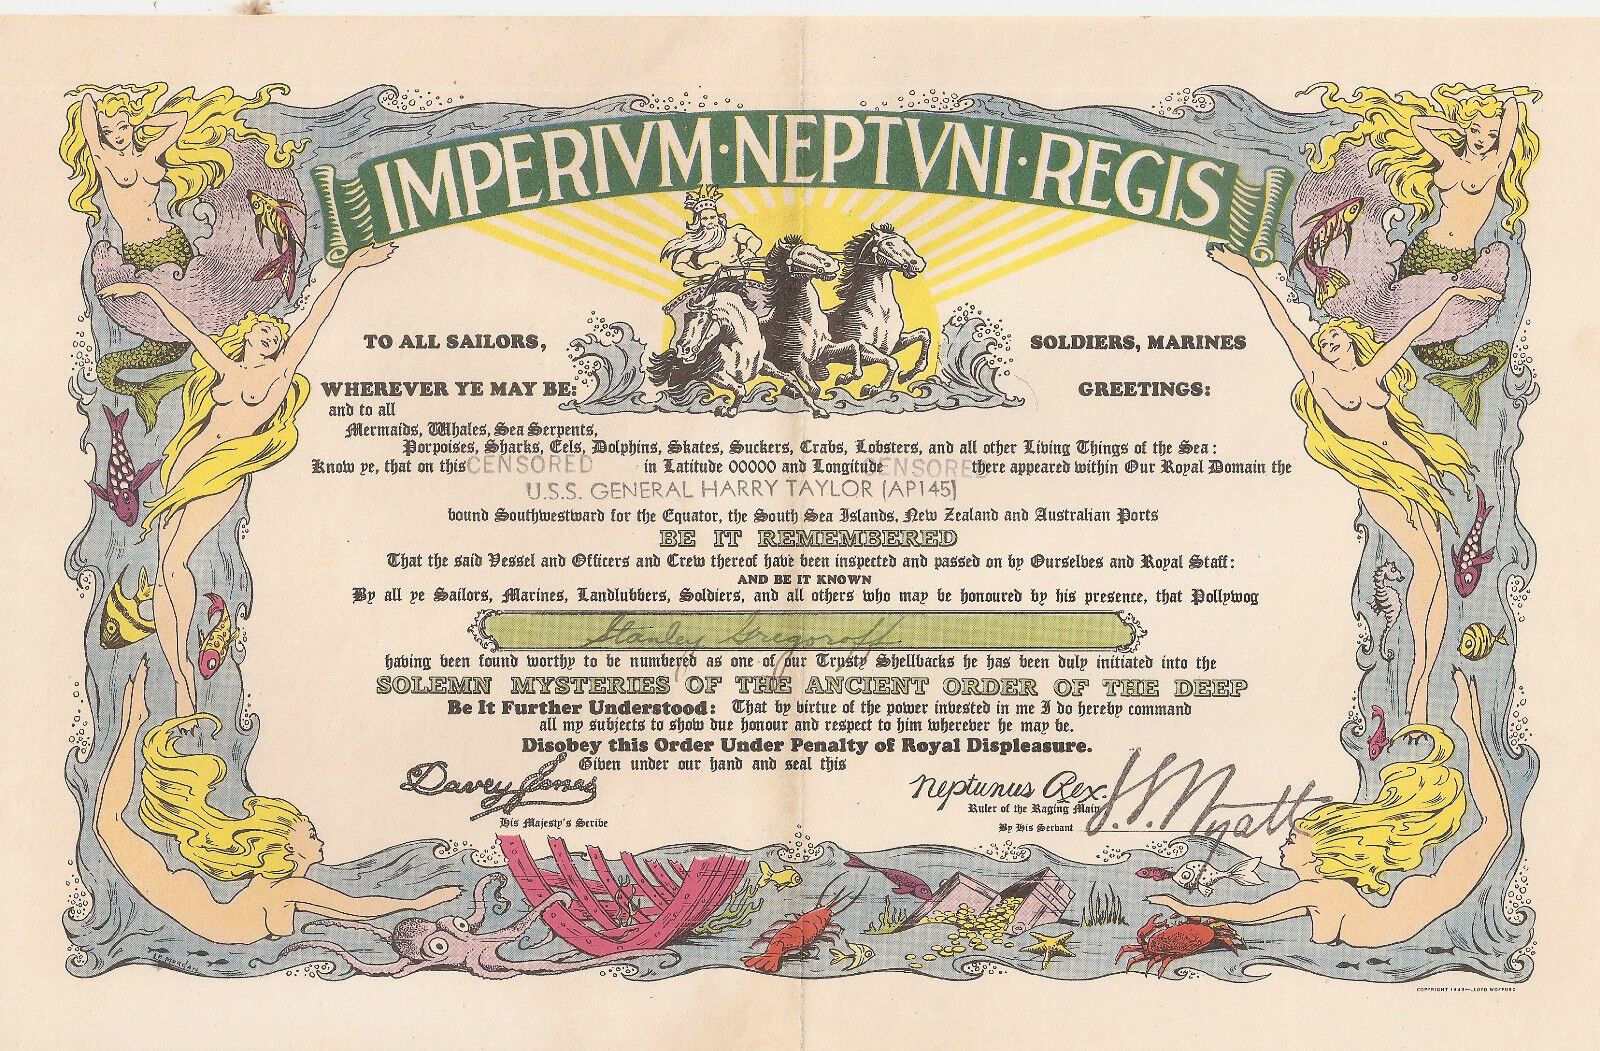 IMPERIVM·NEPTVNI·REGIS
TO ALL SAILORS, SOLDIERS, MARINES
WHEREVER YE MAY BE: GREETINGS:
and to all
Mermaids, Whales, Sea Serpents,
Porpoises, Sharks, Eels, Dolphins, Skates, Suckers, Crabs, Lobsters, and all other Living Things of the Sea:
Know ye, that on this CENSORED in Latitude 00000 and Longitude CENSORED there appeared within Our Royal Domain the
U.S.S. GENERAL HARRY TAYLOR (AP145)
bound Southwestward for the Equator, the South Sea Islands, New Zealand and Australian Ports
BE IT REMEMBERED
That the said Vessel and Officers and Crew thereof have been inspected and passed on by Ourselves and Royal Staff:
AND BE IT KNOWN
By all ye Sailors, Marines, Landlubbers, Soldiers, and all others who may be honoured by his presence, that Pollywog
Stanley Gregoroff
having been found worthy to be numbered as one of our Trusty Shellbacks he has been duly initiated into the
SOLEMN MYSTERIES OF THE ANCIENT ORDER OF THE DEEP
Be It Further Understood: That by virtue of the power invested in me I do hereby command
all my subjects to show due honour and respect to him wherever he may be.
Disobey this Order Under Penalty of Royal Displeasure.
Given under our hand and seal this
Davey Jones
His Majesty's Scribe
Neptunus Rex.
Ruler of the Raging Main
By His Servant J. L. Wyatt
COPYRIGHT 1943—LLOYD WOFFORD